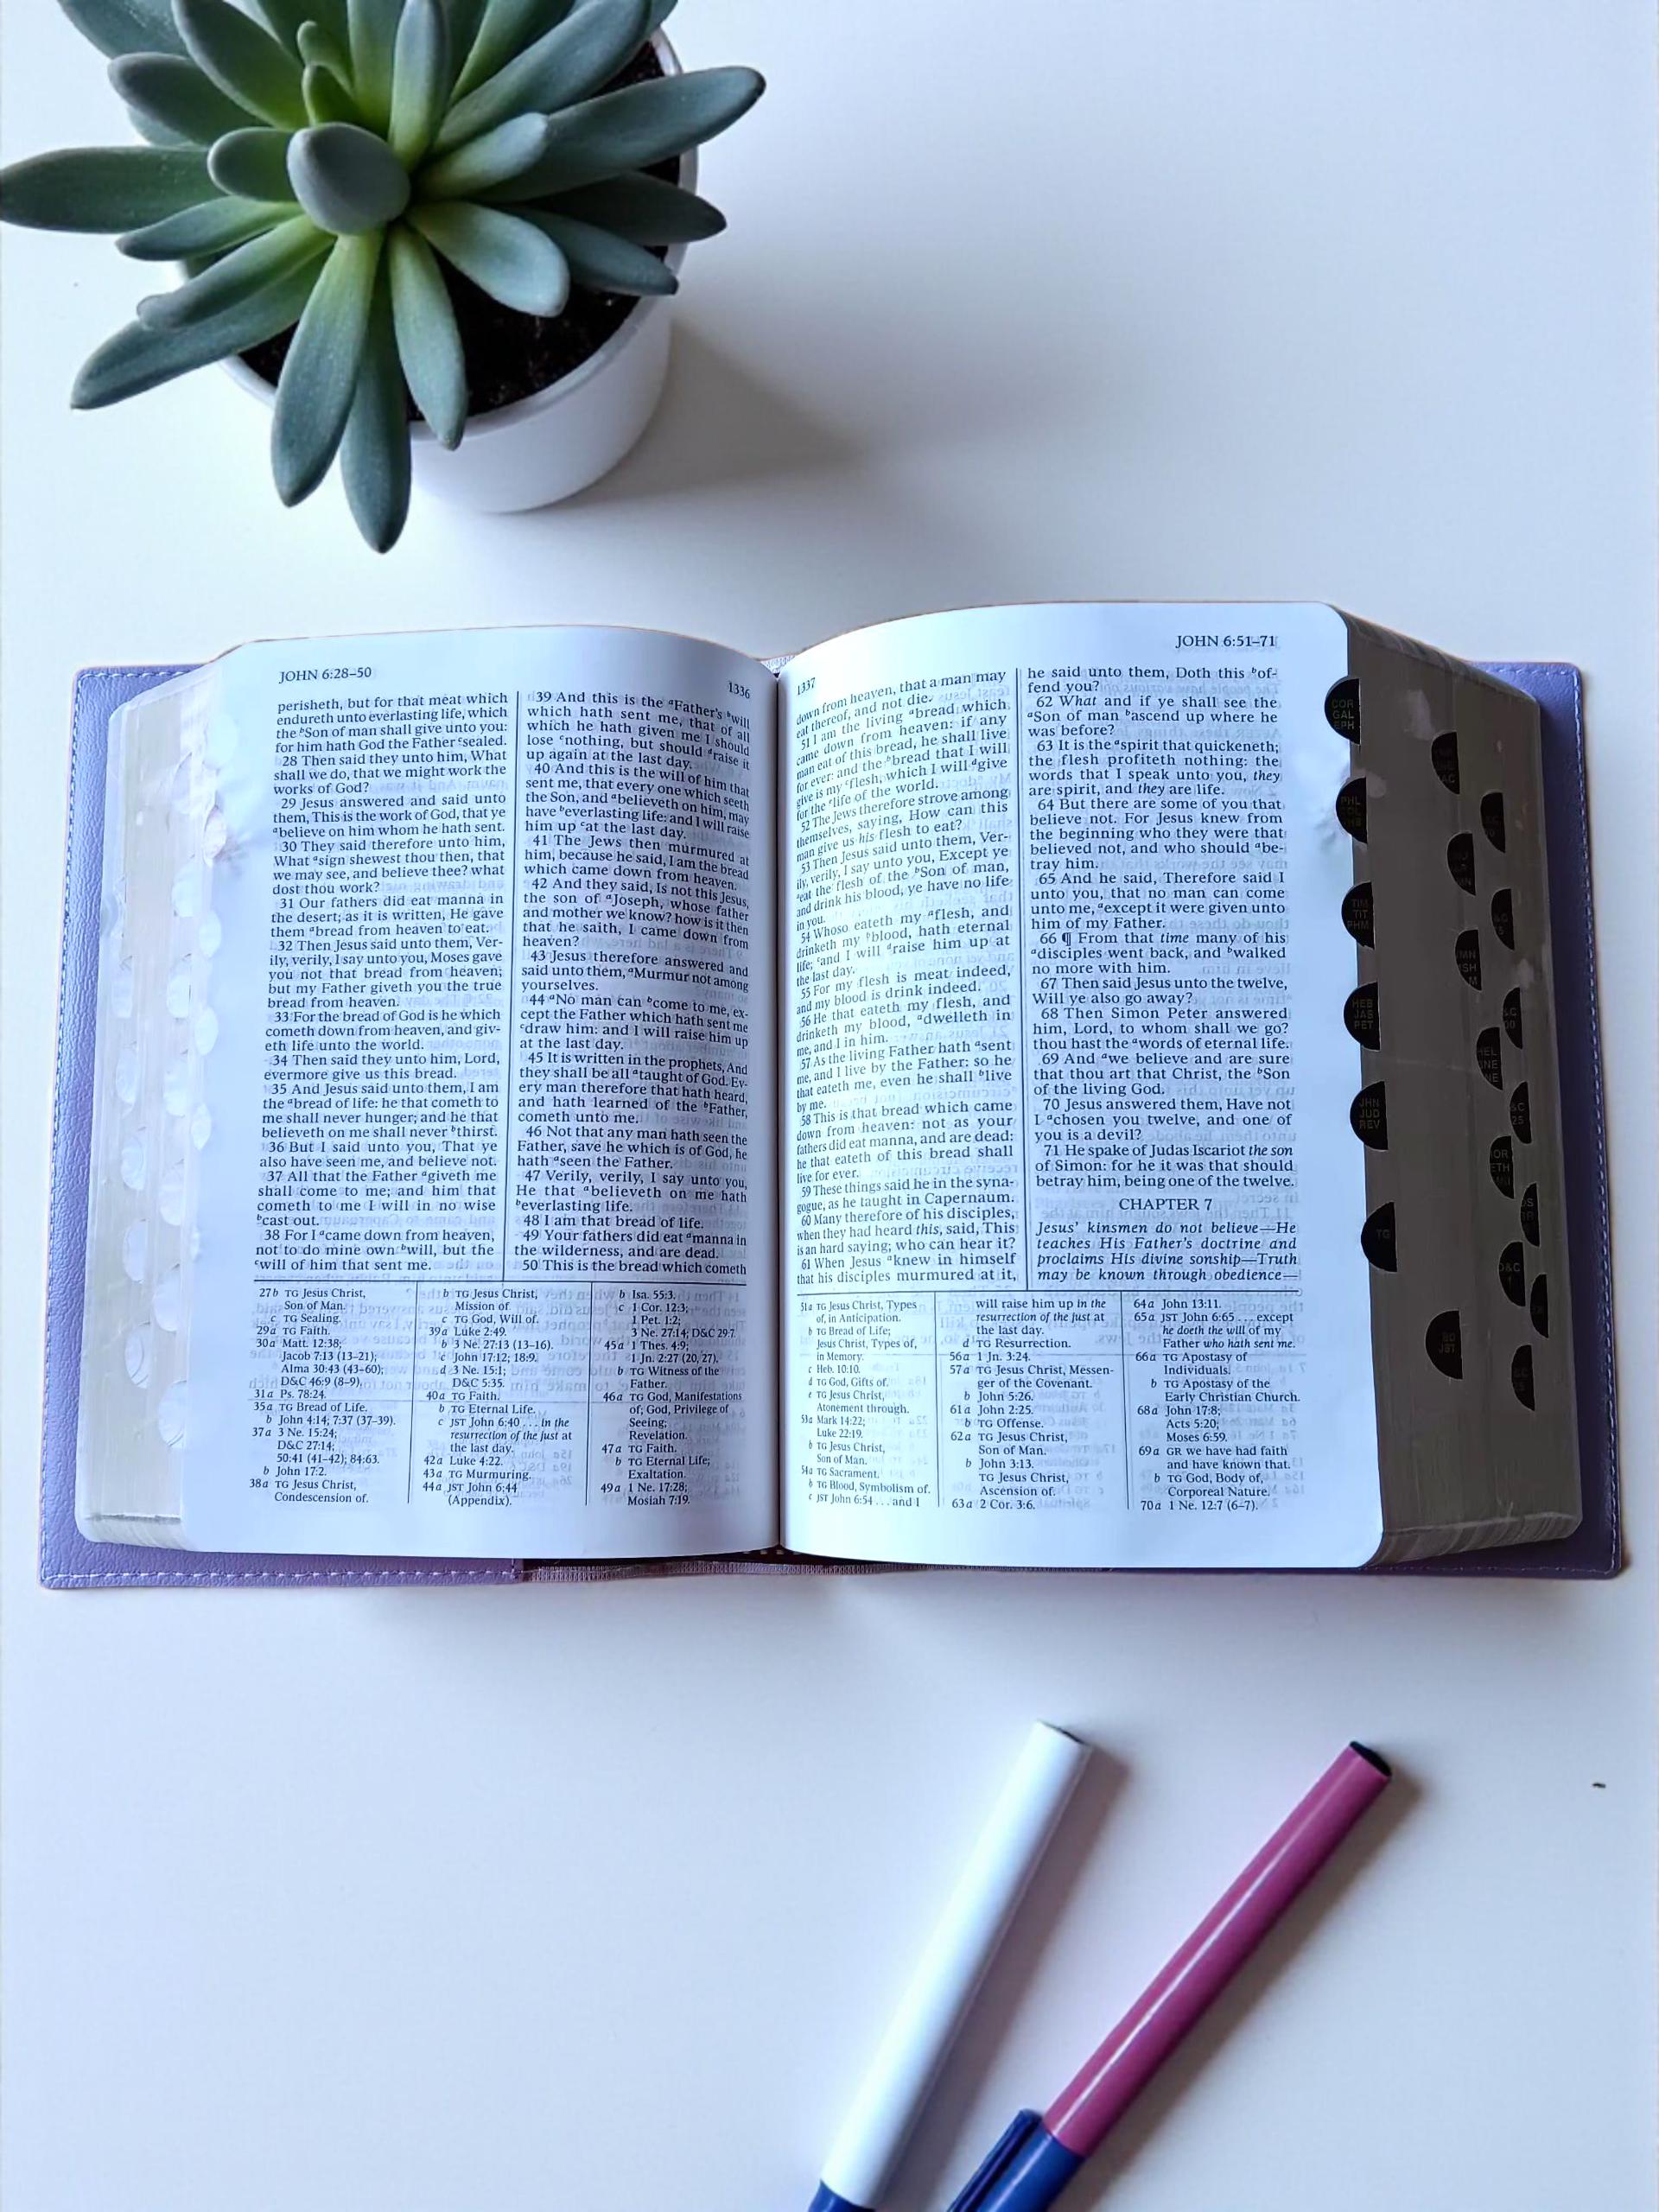 JOHN 6:28–50
1336
perisheth, but for that meat which
endureth unto everlasting life, which
the ᵇSon of man shall give unto you:
for him hath God the Father ᶜsealed.
28 Then said they unto him, What
shall we do, that we might work the
works of God?
29 Jesus answered and said unto
them, This is the work of God, that ye
ᵃbelieve on him whom he hath sent.
30 They said therefore unto him,
What ᵃsign shewest thou then, that
we may see, and believe thee? what
dost thou work?
31 Our fathers did eat manna in
the desert; as it is written, He gave
them ᵃbread from heaven to eat.
32 Then Jesus said unto them, Ver-
ily, verily, I say unto you, Moses gave
you not that bread from heaven;
but my Father giveth you the true
bread from heaven.
33 For the bread of God is he which
cometh down from heaven, and giv-
eth life unto the world.
34 Then said they unto him, Lord,
evermore give us this bread.
35 And Jesus said unto them, I am
the ᵃbread of life: he that cometh to
me shall never hunger; and he that
believeth on me shall never ᵇthirst.
36 But I said unto you, That ye
also have seen me, and believe not.
37 All that the Father ᵃgiveth me
shall come to me; and him that
cometh to me I will in no wise
ᵇcast out.
38 For I ᵃcame down from heaven,
not to do mine own ᵇwill, but the
ᶜwill of him that sent me.
39 And this is the ᵃFather's ᵇwill
which hath sent me, that of all
which he hath given me I should
lose ᶜnothing, but should ᵈraise it
up again at the last day.
40 And this is the will of him that
sent me, that every one which seeth
the Son, and ᵃbelieveth on him, may
have ᵇeverlasting life: and I will raise
him up ᶜat the last day.
41 The Jews then murmured at
him, because he said, I am the bread
which came down from heaven.
42 And they said, Is not this Jesus,
the son of ᵃJoseph, whose father
and mother we know? how is it then
that he saith, I came down from
heaven?
43 Jesus therefore answered and
said unto them, ᵃMurmur not among
yourselves.
44 ᵃNo man can ᵇcome to me, ex-
cept the Father which hath sent me
ᶜdraw him: and I will raise him up
at the last day.
45 It is written in the prophets, And
they shall be all ᵃtaught of God. Ev-
ery man therefore that hath heard,
and hath learned of the ᵇFather,
cometh unto me.
46 Not that any man hath seen the
Father, save he which is of God, he
hath ᵃseen the Father.
47 Verily, verily, I say unto you,
He that ᵃbelieveth on me hath
ᵇeverlasting life.
48 I am that bread of life.
49 Your fathers did eat ᵃmanna in
the wilderness, and are dead.
50 This is the bread which cometh
27b TG Jesus Christ,
Son of Man.
c TG Sealing.
29a TG Faith.
30a Matt. 12:38;
Jacob 7:13 (13–21);
Alma 30:43 (43–60);
D&C 46:9 (8–9).
31a Ps. 78:24.
35a TG Bread of Life.
b John 4:14; 7:37 (37–39).
37a 3 Ne. 15:24;
D&C 27:14;
50:41 (41–42); 84:63.
b John 17:2.
38a TG Jesus Christ,
Condescension of.
b TG Jesus Christ,
Mission of.
c TG God, Will of.
39a Luke 2:49.
b 3 Ne. 27:13 (13–16).
c John 17:12; 18:9.
d 3 Ne. 15:1;
D&C 5:35.
40a TG Faith.
b TG Eternal Life.
c JST John 6:40 . . . in the
resurrection of the just at
the last day.
42a Luke 4:22.
43a TG Murmuring.
44a JST John 6:44
(Appendix).
b Isa. 55:3.
c 1 Cor. 12:3;
1 Pet. 1:2;
3 Ne. 27:14; D&C 29:7.
45a 1 Thes. 4:9;
1 Jn. 2:27 (20, 27).
b TG Witness of the
Father.
46a TG God, Manifestations
of; God, Privilege of
Seeing;
Revelation.
47a TG Faith.
b TG Eternal Life;
Exaltation.
49a 1 Ne. 17:28;
Mosiah 7:19.
1337
JOHN 6:51–71
down from heaven, that a man may
eat thereof, and not die.
51 I am the living ᵃbread which
came down from heaven: if any
man eat of this bread, he shall live
for ever: and the ᵇbread that I will
give is my ᶜflesh, which I will ᵈgive
for the ᵉlife of the world.
52 The Jews therefore strove among
themselves, saying, How can this
man give us his flesh to eat?
53 Then Jesus said unto them, Ver-
ily, verily, I say unto you, Except ye
ᵃeat the flesh of the ᵇSon of man,
and drink his blood, ye have no life
in you.
54 Whoso eateth my ᵃflesh, and
drinketh my ᵇblood, hath eternal
life; ᶜand I will ᵈraise him up at
the last day.
55 For my flesh is meat indeed,
and my blood is drink indeed.
56 He that eateth my flesh, and
drinketh my blood, ᵃdwelleth in
me, and I in him.
57 As the living Father hath ᵃsent
me, and I live by the Father: so he
that eateth me, even he shall ᵇlive
by me.
58 This is that bread which came
down from heaven: not as your
fathers did eat manna, and are dead:
he that eateth of this bread shall
live for ever.
59 These things said he in the syna-
gogue, as he taught in Capernaum.
60 Many therefore of his disciples,
when they had heard this, said, This
is an hard saying; who can hear it?
61 When Jesus ᵃknew in himself
that his disciples murmured at it,
he said unto them, Doth this ᵇof-
fend you?
62 What and if ye shall see the
ᵃSon of man ᵇascend up where he
was before?
63 It is the ᵃspirit that quickeneth;
the flesh profiteth nothing: the
words that I speak unto you, they
are spirit, and they are life.
64 But there are some of you that
believe not. For Jesus knew from
the beginning who they were that
believed not, and who should ᵃbe-
tray him.
65 And he said, Therefore said I
unto you, that no man can come
unto me, ᵃexcept it were given unto
him of my Father.
66 ¶ From that time many of his
ᵃdisciples went back, and ᵇwalked
no more with him.
67 Then said Jesus unto the twelve,
Will ye also go away?
68 Then Simon Peter answered
him, Lord, to whom shall we go?
thou hast the ᵃwords of eternal life.
69 And ᵃwe believe and are sure
that thou art that Christ, the ᵇSon
of the living God.
70 Jesus answered them, Have not
I ᵃchosen you twelve, and one of
you is a devil?
71 He spake of Judas Iscariot the son
of Simon: for he it was that should
betray him, being one of the twelve.
CHAPTER 7
Jesus' kinsmen do not believe—He
teaches His Father's doctrine and
proclaims His divine sonship—Truth
may be known through obedience—
51a TG Jesus Christ, Types
of, in Anticipation.
b TG Bread of Life;
Jesus Christ, Types of,
in Memory.
c Heb. 10:10.
d TG God, Gifts of.
e TG Jesus Christ,
Atonement through.
53a Mark 14:22;
Luke 22:19.
b TG Jesus Christ,
Son of Man.
54a TG Sacrament.
b TG Blood, Symbolism of.
c JST John 6:54 . . . and I
will raise him up in the
resurrection of the just at
the last day.
d TG Resurrection.
56a 1 Jn. 3:24.
57a TG Jesus Christ, Messen-
ger of the Covenant.
b John 5:26.
61a John 2:25.
b TG Offense.
62a TG Jesus Christ,
Son of Man.
b John 3:13.
TG Jesus Christ,
Ascension of.
63a 2 Cor. 3:6.
64a John 13:11.
65a JST John 6:65 . . . except
he doeth the will of my
Father who hath sent me.
66a TG Apostasy of
Individuals.
b TG Apostasy of the
Early Christian Church.
68a John 17:8;
Acts 5:20;
Moses 6:59.
69a GR we have had faith
and have known that.
b TG God, Body of,
Corporeal Nature.
70a 1 Ne. 12:7 (6–7).
COR
GAL
EPH
PHL
TIM
TIT
PHM
HEB
JAS
PET
JHN
JUD
REV
TG
BD
JST